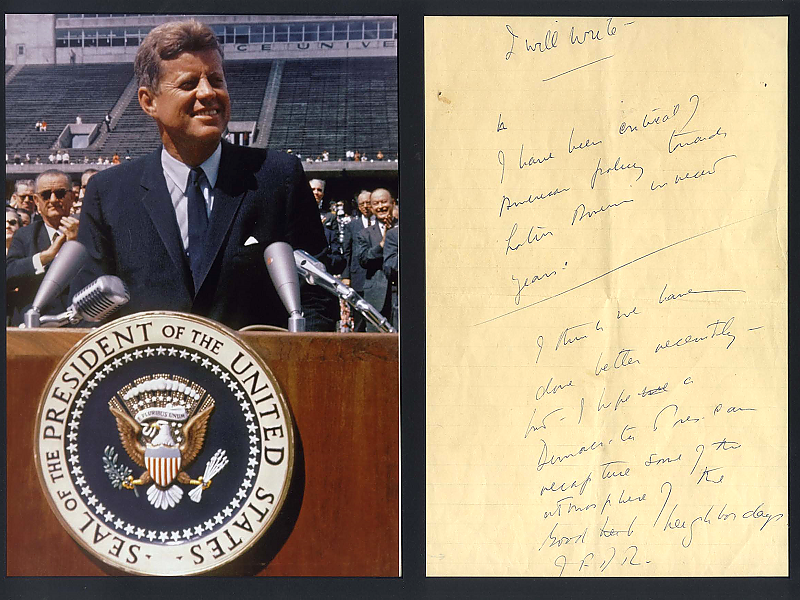 CE UNIVE
SEAL OF THE PRESIDENT OF THE UNITED STATES
E PLURIBUS UNUM
I will write —
I have been critical of
American policy towards
Latin America in recent
years.
I think we have
done better recently —
but I hope a
Democratic Pres. can
recapture some of the
atmosphere of the
Good Neighbor days
of F.D.R.